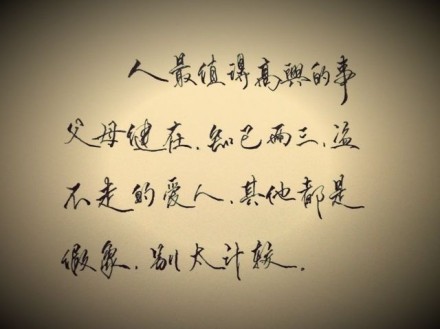 人最值得高興的事
父母健在、知己两三、盗
不走的爱人、其他都是
假象、别太计较.